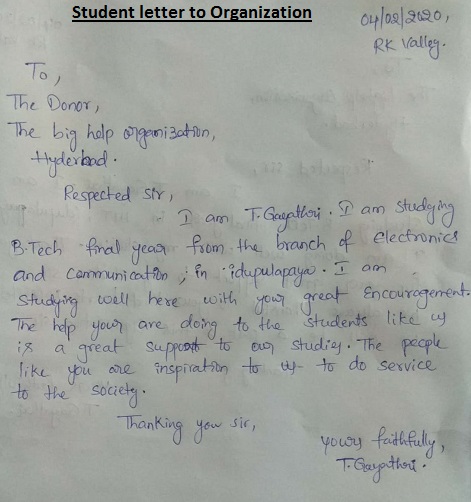 Student letter to Organization
04/02/2020,
RK Valley.
To,
The Donor,
The big help organization,
Hyderbad.
Respected Sir,
I am T. Gayathri. I am studying
B.Tech final year from the branch of Electronics
and Communication, in idupulapaya. I am
studying well here with your great Encouragement.
The help your are doing to the students like us
is a great support to our studies. The people
like you are inspiration to us to do service
to the society.
Thanking you sir,
yours faithfully,
T. Gayathri.